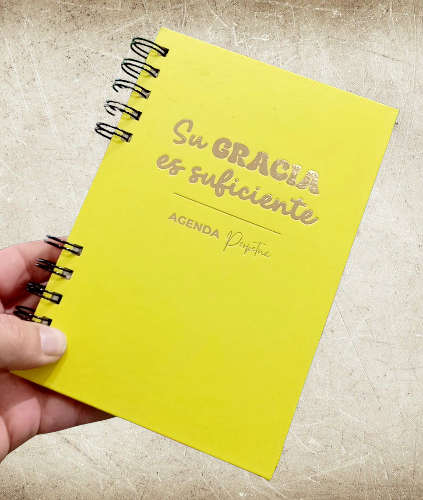 Su GRACIA
es suficiente
AGENDA Perpetua